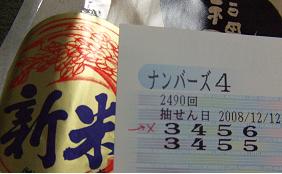 新米
ナンバーズ4
2490回
抽せん日 2008/12/12
→× 3456
3455